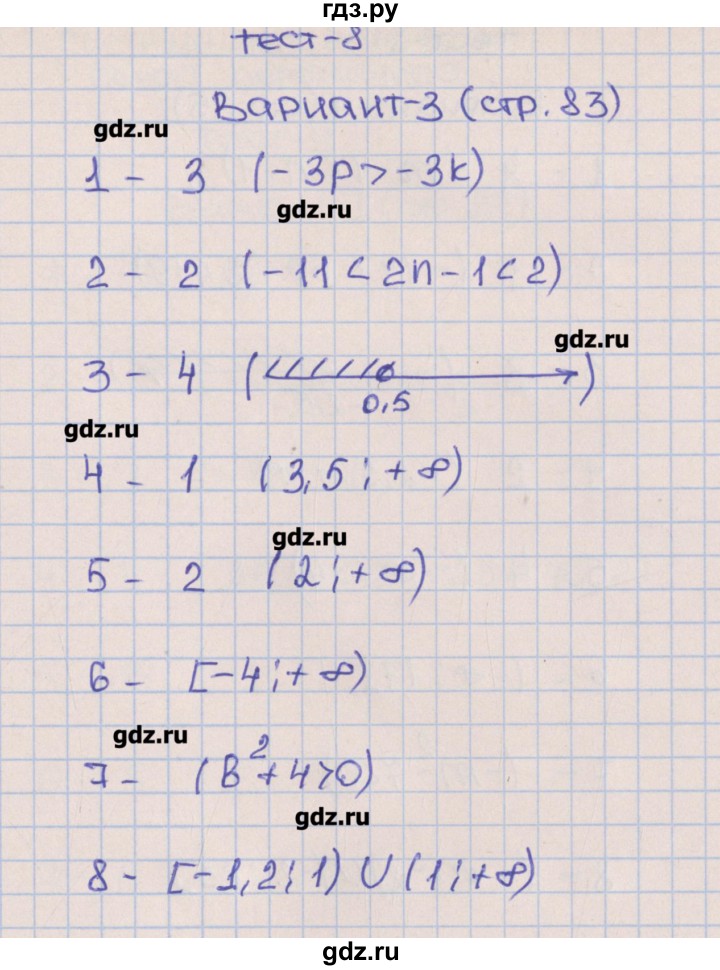 гдз.ру
тест-8
Вариант-3 (стр. 83)
gdz.ru
1 - 3 (-3p > -3k)
gdz.ru
2 - 2 (-11 < 2n - 1 < 2)
gdz.ru
3 - 4 ( )
0,5
gdz.ru
4 - 1 (3,5 ; +∞)
gdz.ru
5 - 2 (2 ; +∞)
6 - [-4 ; +∞)
gdz.ru
7 - (в² + 4 > 0)
gdz.ru
8 - [-1,2 ; 1) ∪ (1 ; +∞)
gdz.ru